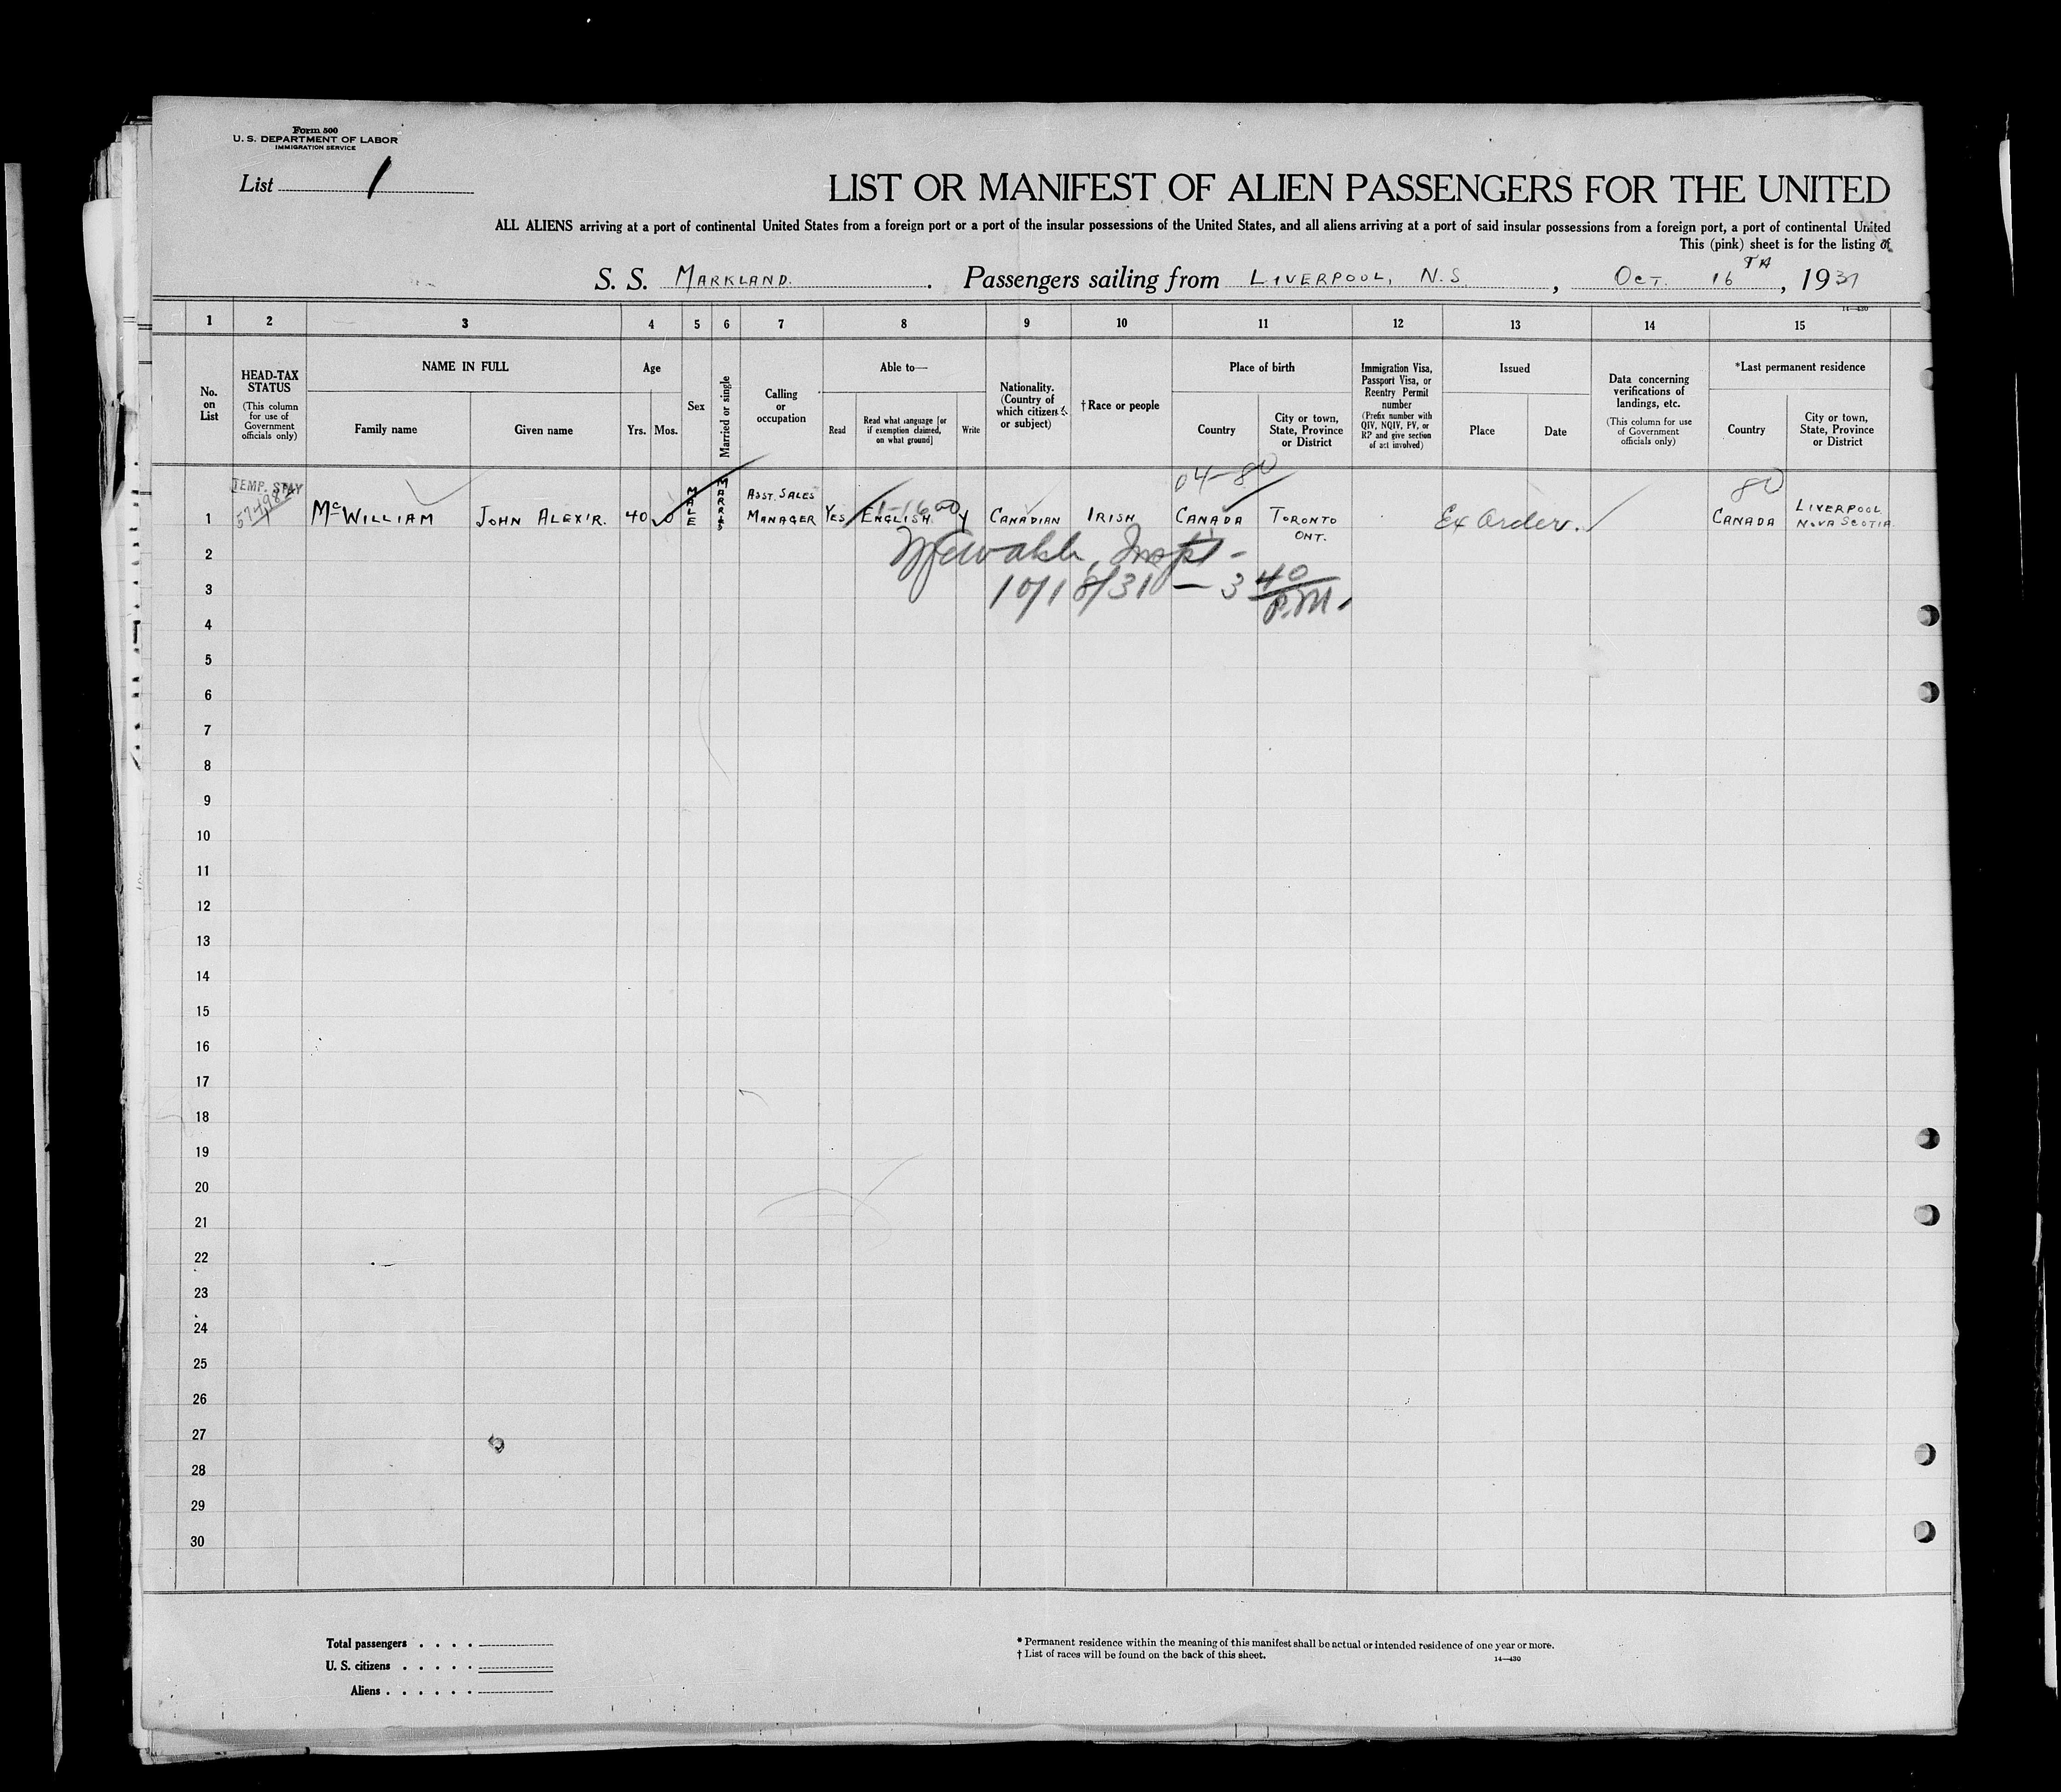 Form 500
U. S. DEPARTMENT OF LABOR
IMMIGRATION SERVICE
List 1
LIST OR MANIFEST OF ALIEN PASSENGERS FOR THE UNITED
ALL ALIENS arriving at a port of continental United States from a foreign port or a port of the insular possessions of the United States, and all aliens arriving at a port of said insular possessions from a foreign port, a port of continental United
This (pink) sheet is for the listing of
S. S. MARKLAND. Passengers sailing from LIVERPOOL, N.S. , OCT. 16TH , 1931
14—430
1 2 3 4 5 6 7 8 9 10 11 12 13 14 15
No. on List
HEAD-TAX STATUS (This column for use of Government officials only)
NAME IN FULL
Family name Given name
Age
Yrs. Mos.
Sex
Married or single
Calling or occupation
Able to—
Read Read what language [or if exemption claimed, on what ground] Write
Nationality. (Country of which citizen or subject)
† Race or people
Place of birth
Country City or town, State, Province or District
Immigration Visa, Passport Visa, or Reentry Permit number (Prefix number with QIV, NQIV, PV, or RP and give section of act involved)
Issued
Place Date
Data concerning verifications of landings, etc. (This column for use of Government officials only)
*Last permanent residence
Country City or town, State, Province or District
TEMP. STAY 04-80 80
1 McWILLIAM JOHN ALEX'R. 40 MALE ASST. SALES MANAGER YES ENGLISH Y CANADIAN IRISH CANADA TORONTO ONT. Ex Order. CANADA LIVERPOOL NOVA SCOTIA
2 Inspt-
3 10/18/31 — 3 40 P.M.
4
5
6
7
8
9
10
11
12
13
14
15
16
17
18
19
20
21
22
23
24
25
26
27
28
29
30
Total passengers . . . .
U. S. citizens . . . . .
Aliens . . . . . .
* Permanent residence within the meaning of this manifest shall be actual or intended residence of one year or more.
† List of races will be found on the back of this sheet.
14—430